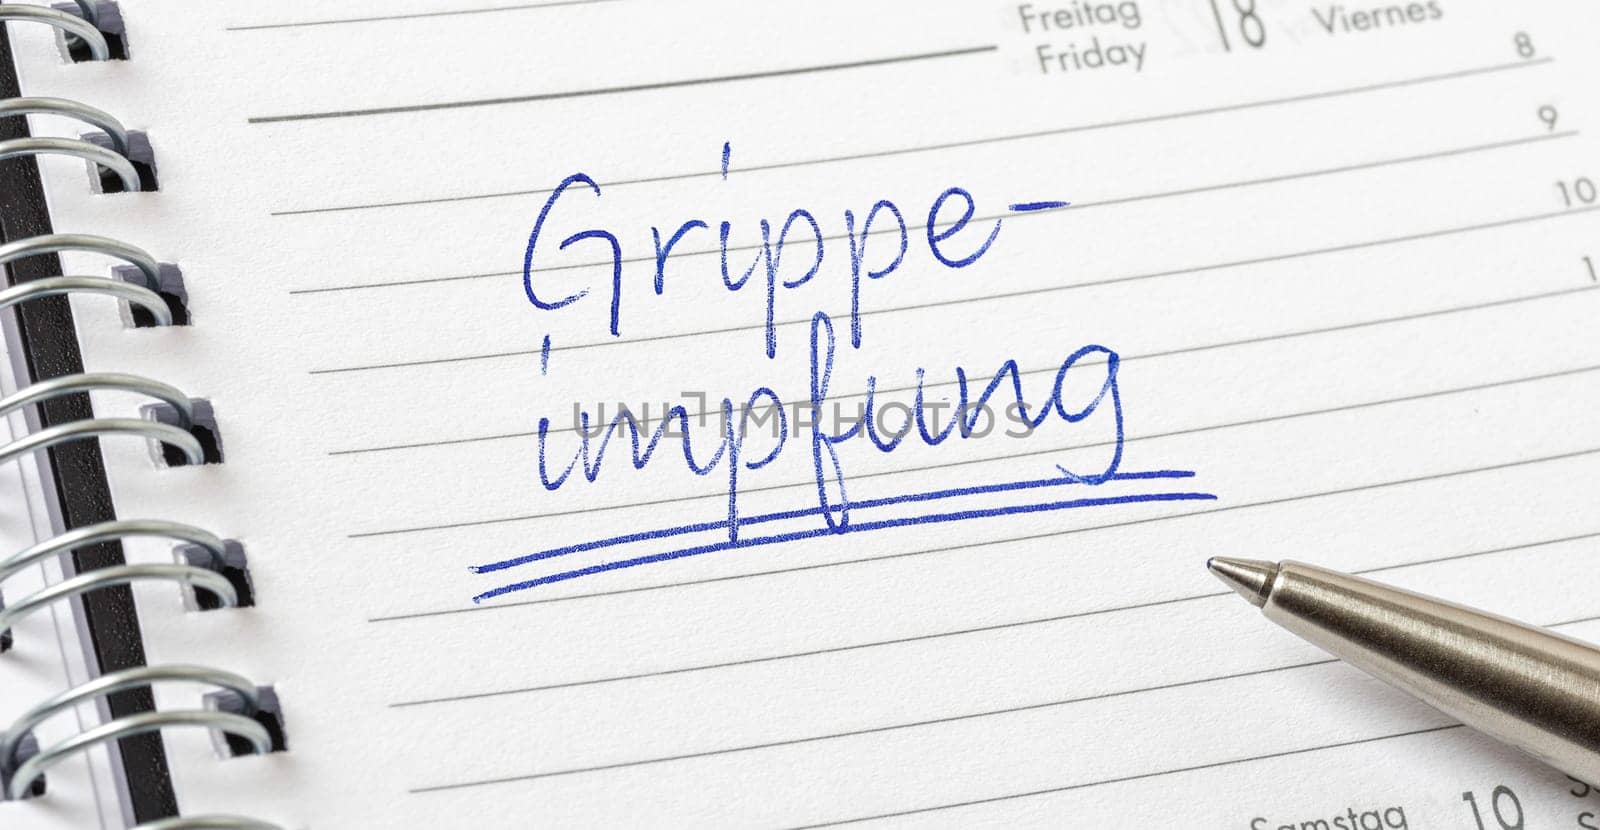 Freitag 18 Viernes
Friday
8
9
10
1
Grippe-
impfung
UNLIMPHOTOS
Samstag 10